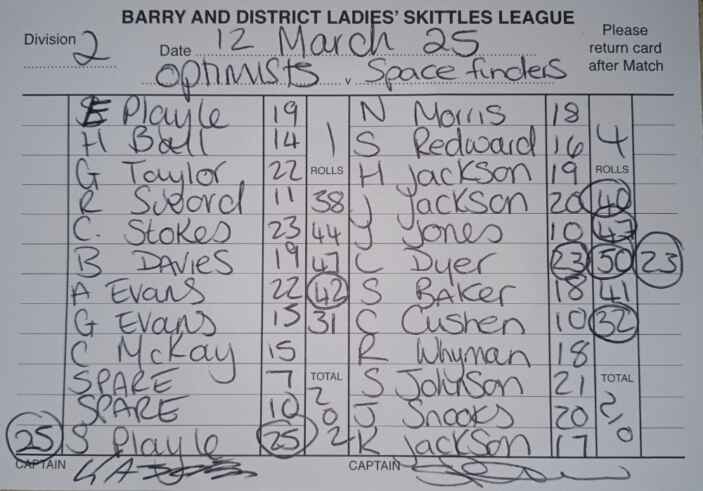 BARRY AND DISTRICT LADIES' SKITTLES LEAGUE
Division 2 Date 12 March 25 Please return card after Match
Optimists v Space finders
E Playle 19 N Morris 18
H Ball 14 1 S Redward 16 4
G Taylor 22 ROLLS H Jackson 19 ROLLS
R Sword 11 38 J Jackson 20 40
C. Stokes 23 44 Y Jones 10 47
B DAVIES 19 47 C Dyer 23 50 23
A Evans 22 42 S BAKER 18 41
G Evans 15 31 C Cushen 10 32
C McKay 15 R Whyman 18
SPARE 7 TOTAL S Johnson 21 TOTAL
SPARE 10 20 J Snooks 20 210
25 S Playle 25 2 K Jackson 17
CAPTAIN CAPTAIN